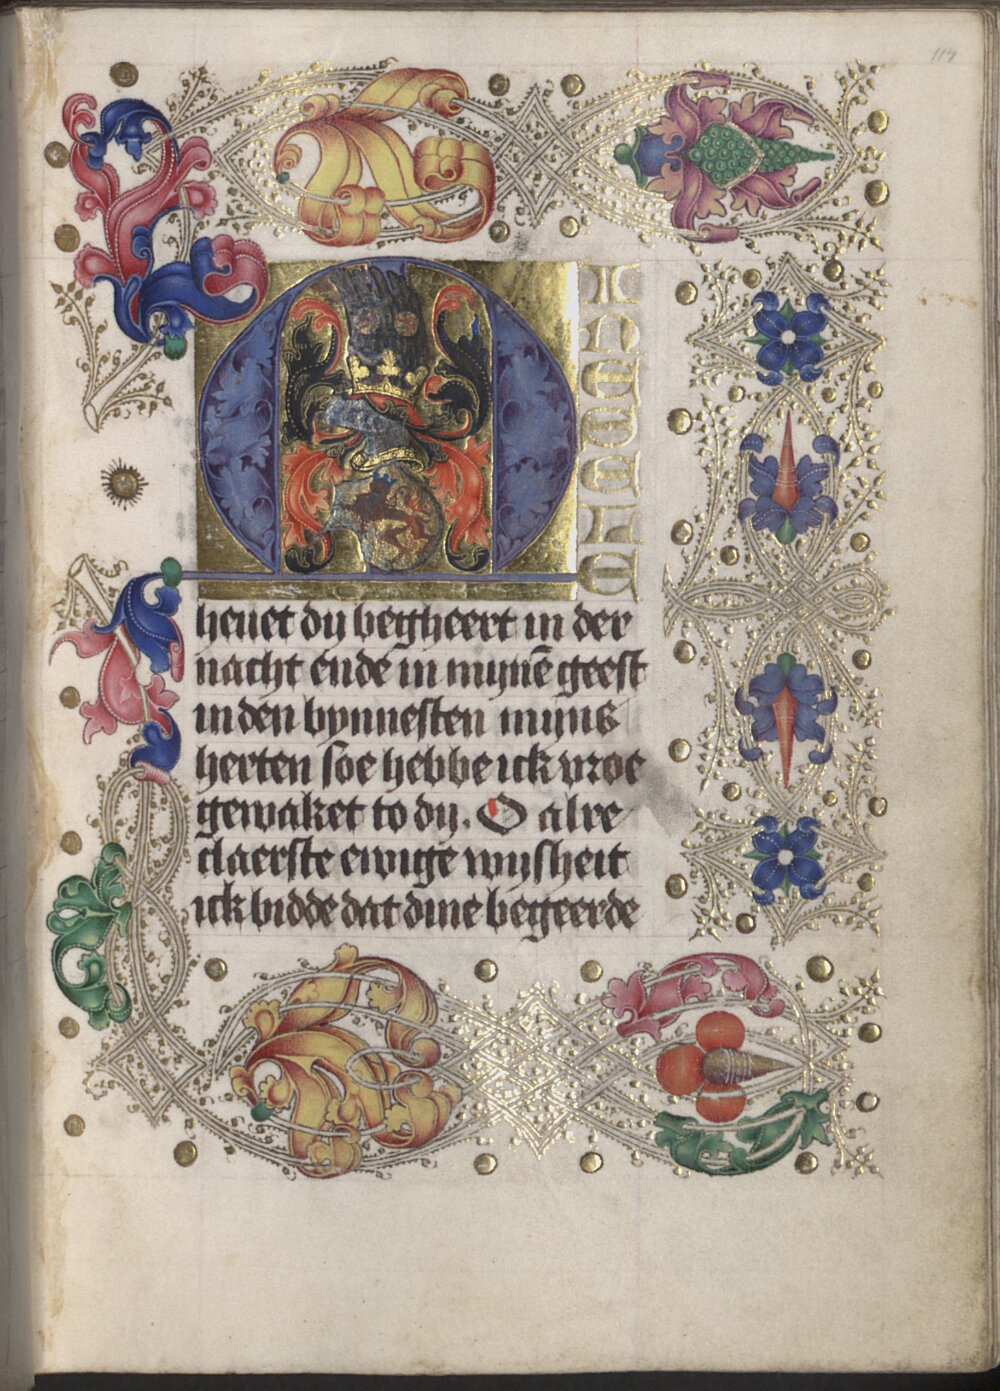 MINE
heuet dy begheert in der
nacht ende in mynē geest
in den bynnesten myns
herten soe hebbe ick vroe
gewaket to dy. O alre
claerste ewige wysheit
ick bidde dat dine begeerde